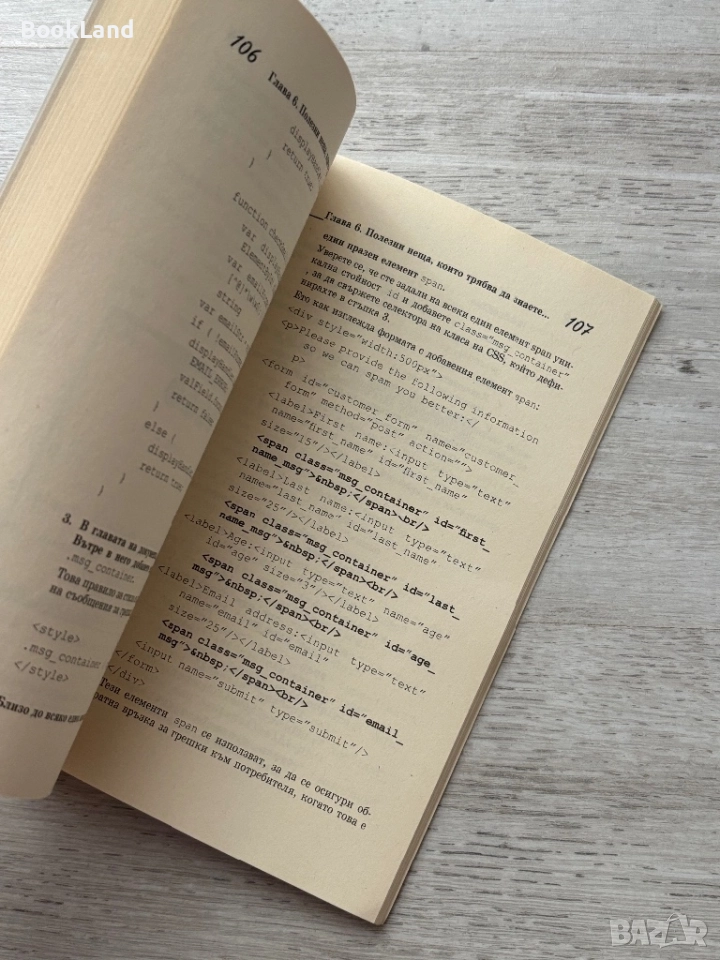 BookLand
106
Глава 6. Полезни неща,
display
return true;
}
}
function check
var display
Element
var email
string
var email
if ( !email
display
valField.
return false
}
else {
display
return true;
}
}
3. В главата на
Вътре в него
.msg_container.
Това правило
на съобщения и
<style>
.msg_container
</style>
Близо до всяко
Глава 6. Полезни неща, които трябва да знаете...
107
един празен елемент span.
Уверете се, че сте задали на всеки един елемент span уни-
кална стойност id и добавете class="msg_container"
, за да свържете селектора на класа на CSS, който дефи-
нирахте в стъпка 3.
Ето как изглежда формата с добавения елемент span:
<div style="width:500px">
<p>Please provide the following information
so we can spam you better:</
p>
<form id="customer_form" name="customer_
form" method="post" action="">
<label>First name:<input type="text"
name="first_name" id="first_name"
size="15"/></label>
<span class="msg_container" id="first_
name_msg">&nbsp;</span><br/>
<label>Last name:<input type="text"
name="last_name" id="last_name"
size="25"/></label>
<span class="msg_container" id="last_
name_msg">&nbsp;</span><br/>
<label>Age:<input type="text" name="age"
id="age" size="3"/></label>
<span class="msg_container" id="age_
msg">&nbsp;</span><br/>
<label>Email address:<input type="text"
name="email" id="email"
size="25"/></label>
<span class="msg_container" id="email_
msg">&nbsp;</span><br/>
<input name="submit" type="submit"/>
</form>
</div>
Тези елементи span се използват, за да се осигури об-
ратна връзка за грешки към потребителя, когато това е
BAZAR